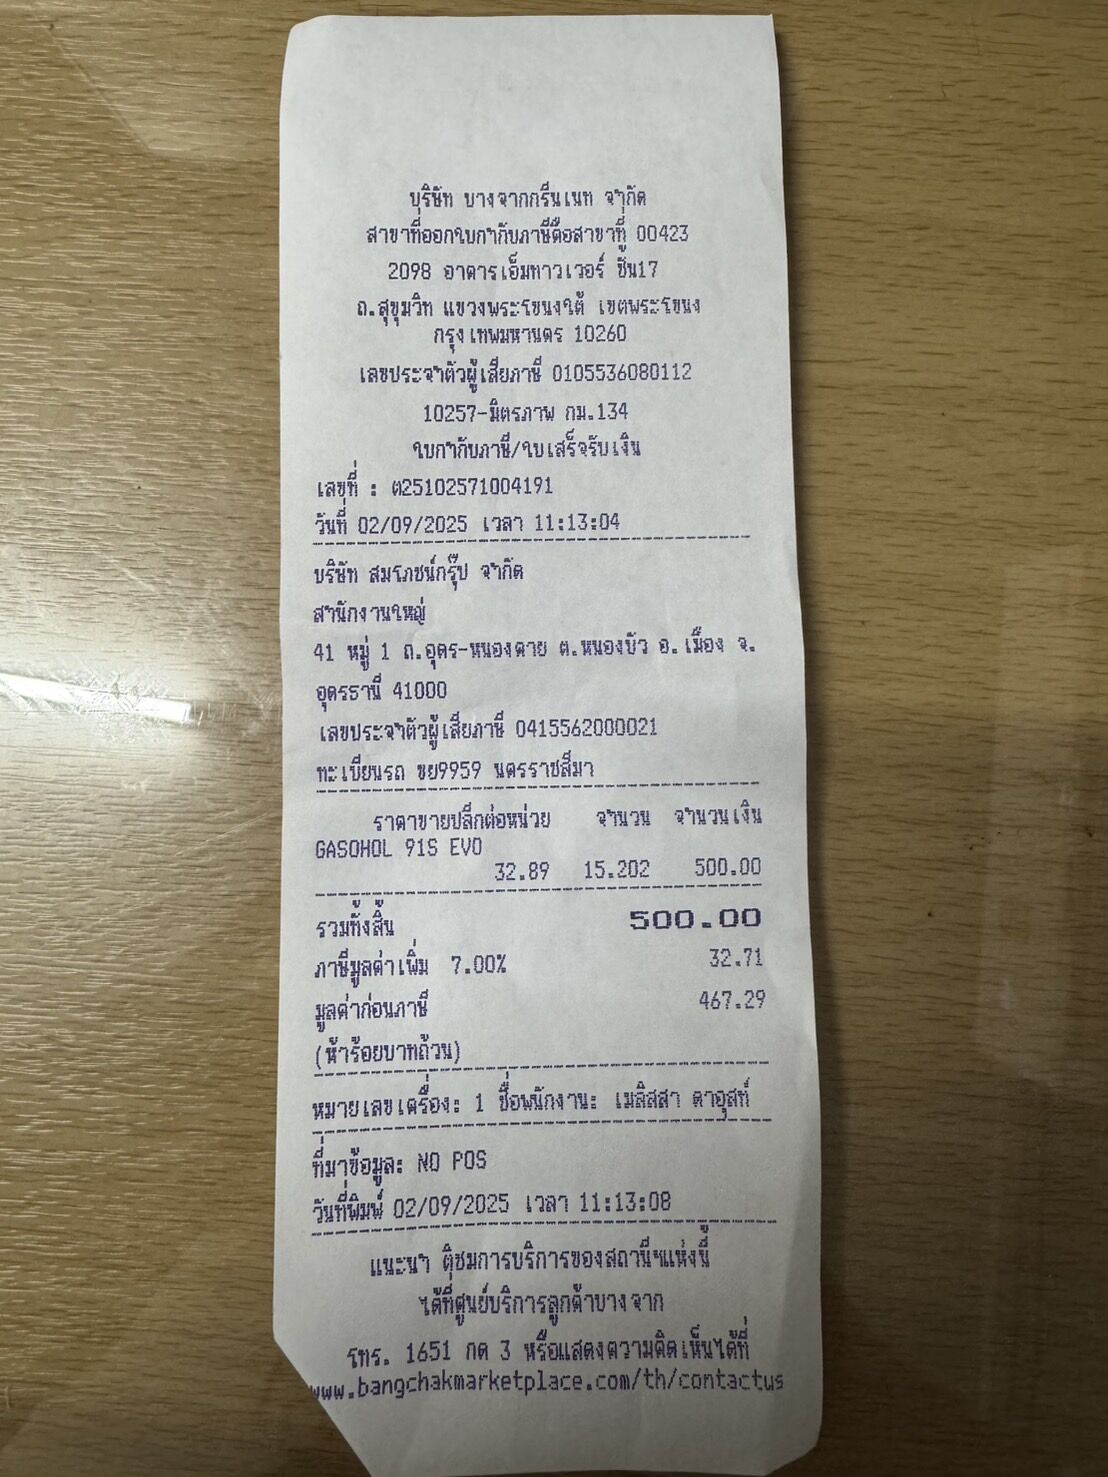 บริษัท บางจากกรีนเนท จำกัด
สาขาที่ออกใบกำกับภาษีคือสาขาที่ 00423
2098 อาคารเอ็มทาวเวอร์ ชั้น17
ถ.สุขุมวิท แขวงพระโขนงใต้ เขตพระโขนง
กรุงเทพมหานคร 10260
เลขประจำตัวผู้เสียภาษี 0105536080112
10257-มิตรภาพ กม.134
ใบกำกับภาษี/ใบเสร็จรับเงิน
เลขที่ : ต25102571004191
วันที่ 02/09/2025 เวลา 11:13:04
บริษัท สมโภชน์กรุ๊ป จำกัด
สำนักงานใหญ่
41 หมู่ 1 ถ.อุดร-หนองคาย ต.หนองบัว อ.เมือง จ.
อุดรธานี 41000
เลขประจำตัวผู้เสียภาษี 0415562000021
ทะเบียนรถ ขย9959 นครราชสีมา
ราคาขายปลีกต่อหน่วย จำนวน จำนวนเงิน
GASOHOL 91S EVO
32.89 15.202 500.00
รวมทั้งสิ้น 500.00
ภาษีมูลค่าเพิ่ม 7.00% 32.71
มูลค่าก่อนภาษี 467.29
(ห้าร้อยบาทถ้วน)
หมายเลขเครื่อง: 1 ชื่อพนักงาน: เมลิสสา ดาอุสท์
ที่มาข้อมูล: NO POS
วันที่พิมพ์ 02/09/2025 เวลา 11:13:08
แนะนำ ติชมการบริการของสถานีฯแห่งนี้
ได้ที่ศูนย์บริการลูกค้าบางจาก
โทร. 1651 กด 3 หรือแสดงความคิดเห็นได้ที่
www.bangchakmarketplace.com/th/contactus